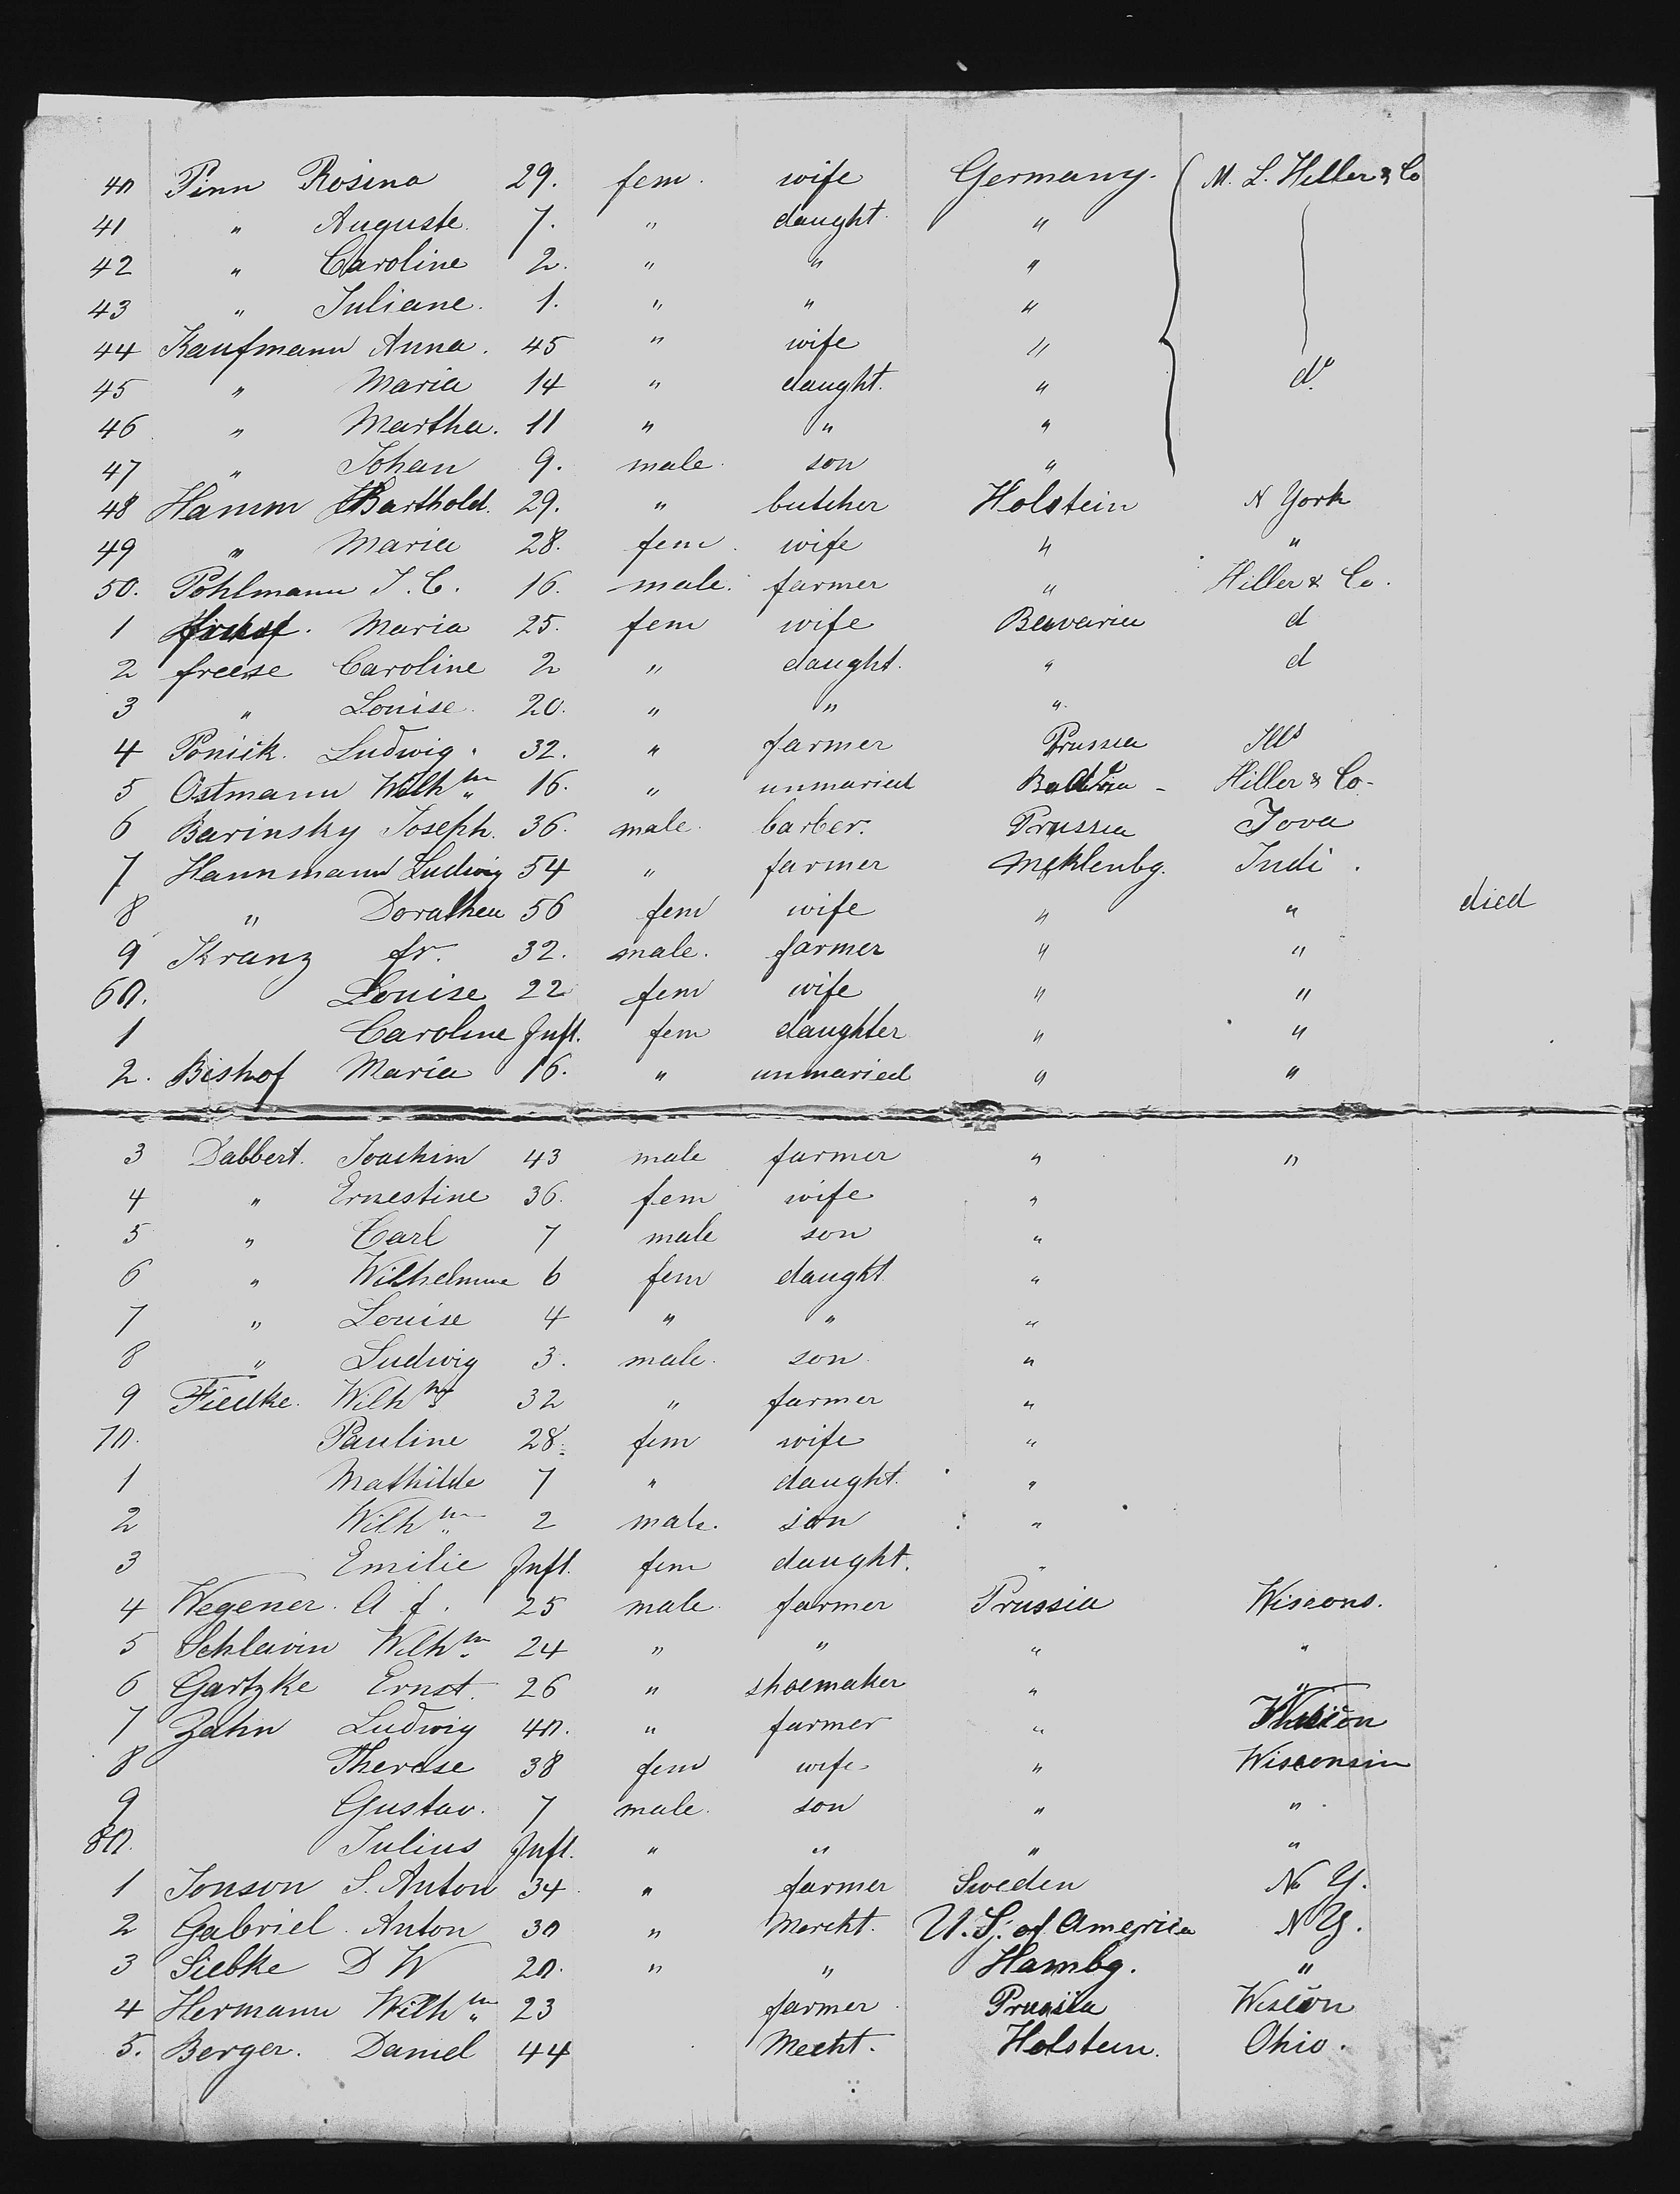 40 Pinn Rosina 29. fem. wife Germany. M. L. Hiller & Co
41 " Auguste. 7. " daught. "
42 " Caroline 2. " " "
43 " Juliane. 1. " " "
44 Kaufmann Anna. 45 " wife "
45 " Maria 14 " daught. " do
46 " Martha. 11 " " "
47 " Johan 9. male. son "
48 Hamm Barthold. 29. " butcher Holstein N York
49 " Maria 28. fem. wife " "
50. Pohlmann J. C. 16. male. farmer " Hiller & Co.
1 Maria 25. fem wife Bavaria d
2 freese Caroline 2 " daught. " d
3 " Louise. 20. " " "
4 Ponick. Ludwig. 32. " farmer Prussia Ills
5 Ostmann Wilhm 16. " unmaried Hiller & Co-
6 Barinsky Joseph. 36. male. barber. Prussia Jova
7 Hannmann Ludwig 54 " farmer Meklenbg. Indi.
8 " Dorathea 56 fem wife " " died
9 Kranz fr. 32. male. farmer " "
60. Louise 22 fem wife " "
1 Caroline Inft. fem daughter " "
2. Bishof Maria 16. " unmaried " "
3 Dabbert. Joachim 43 male farmer " "
4 " Ernestine 36. fem wife "
5 " Carl 7 male son "
6 " Wilhelmine 6 fem daught. "
7 " Louise 4 " " "
8 " Ludwig 3. male. son "
9 Fiedke. Wilhm 32 " farmer "
70. Pauline 28. fem wife "
1 Mathilde 7 " daught. "
2 Wilhm 2 male. son "
3 Emilie Inft. fem daught. "
4 Wegener. A f. 25 male. farmer Prussia Wiscons.
5 Schlavin Wilhm 24 " " " "
6 Gartzke Ernst. 26 " shoemaker " "
7 Zahn Ludwig 40. " farmer "
8 Therese 38 fem wife " Wisconsin
9 Gustav. 7 male. son " "
80. Julius Inft. " " " "
1 Jonson S. Anton 34 " farmer Sweden N Y.
2 Gabriel. Anton 30 " Mercht. U. S. of America N Y.
3 Siebke D W 20. " " Hambg. "
4 Hermann Wilhm 23 farmer Prussia Wiscon
5. Berger. Daniel 44 Mecht. Holstein. Ohio.